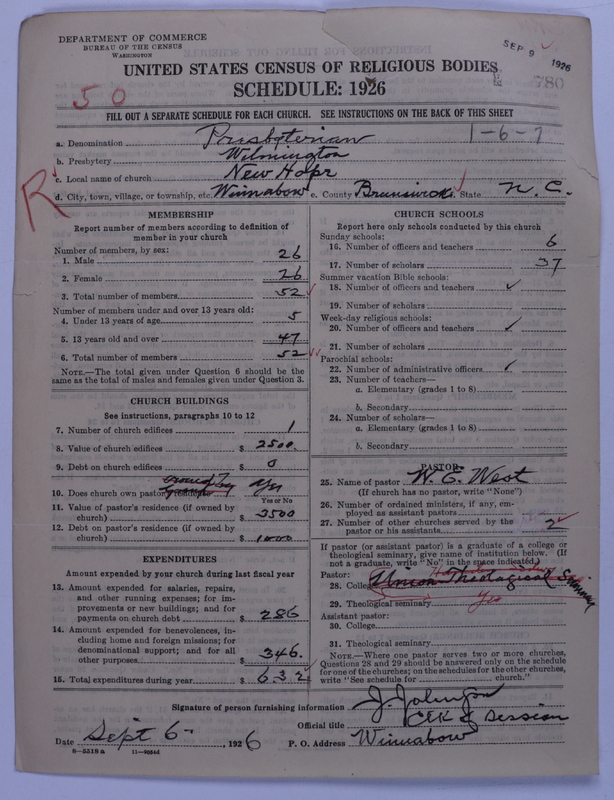 DEPARTMENT OF COMMERCE
BUREAU OF THE CENSUS
WASHINGTON
SEP 9 1926
780
UNITED STATES CENSUS OF RELIGIOUS BODIES
SCHEDULE: 1926
50
FILL OUT A SEPARATE SCHEDULE FOR EACH CHURCH. SEE INSTRUCTIONS ON THE BACK OF THIS SHEET
a. Denomination Presbyterian 1-6-7
b. Presbytery Wilmington
c. Local name of church New Hope
R
d. City, town, village, or township, etc. Winnabow e. County Brunswick State N. C.
MEMBERSHIP
Report number of members according to definition of
member in your church
Number of members, by sex:
1. Male 26
2. Female 26
3. Total number of members 52
Number of members under and over 13 years old:
4. Under 13 years of age 5
5. 13 years old and over 47
6. Total number of members 52
NOTE.—The total given under Question 6 should be
same as the total of males and females given under Question 3.
CHURCH BUILDINGS
See instructions, paragraphs 10 to 12
7. Number of church edifices 1
8. Value of church edifices $ 2500.
9. Debt on church edifices $ 0
10. Does church own pastor's residence
Yes or No
11. Value of pastor's residence (if owned by
church) $ 3500
12. Debt on pastor's residence (if owned by
church) $ 1000
EXPENDITURES
Amount expended by your church during last fiscal year
13. Amount expended for salaries, repairs,
and other running expenses; for im-
provements or new buildings; and for
payments on church debt $ 286
14. Amount expended for benevolences, in-
cluding home and foreign missions; for
denominational support; and for all
other purposes $ 346.
15. Total expenditures during year $ 632
CHURCH SCHOOLS
Report here only schools conducted by this church
Sunday schools:
16. Number of officers and teachers 6
17. Number of scholars 37
Summer vacation Bible schools:
18. Number of officers and teachers ✓
19. Number of scholars
Week-day religious schools:
20. Number of officers and teachers ✓
21. Number of scholars
Parochial schools:
22. Number of administrative officers ✓
23. Number of teachers—
a. Elementary (grades 1 to 8)
b. Secondary
24. Number of scholars—
a. Elementary (grades 1 to 8)
b. Secondary
PASTOR
25. Name of pastor W. C. West
(If church has no pastor, write "None")
26. Number of ordained ministers, if any, em-
ployed as assistant pastors
27. Number of other churches served by the
pastor or his assistants 2
If pastor (or assistant pastor) is a graduate of a college or
theological seminary, give name of institution below. (If
not a graduate, write "No" in the space indicated.)
Pastor:
28. College Union Theological Seminary
29. Theological seminary Yes
Assistant pastor:
30. College
31. Theological seminary
NOTE.—Where one pastor serves two or more churches,
Questions 28 and 29 should be answered only on the schedule
for one of the churches; on the schedules for the other churches,
write "See schedule for church."
Signature of person furnishing information J. Johnson
Official title Clk of Session
Date Sept 6-, 1926 P. O. Address Winnabow
8—5518 a 11—9054d